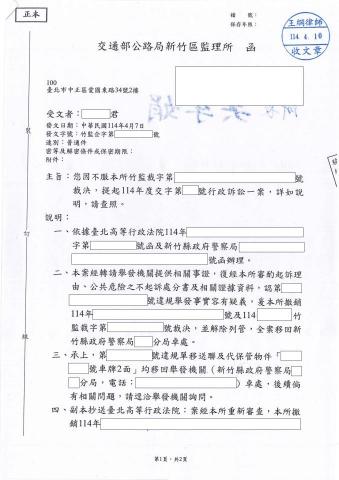 正本
檔 號：
保存年限：
王綱律師
114.4.10
收文章
交通部公路局新竹區監理所 函
100
臺北市中正區愛國東路34號2樓
受文者：君
發文日期：中華民國114年4月7日
發文字號：竹監企字第 號
速別：普通件
密等及解密條件或保密期限：
附件：
主旨：您因不服本所竹監裁字第 號
裁決，提起114年度交字第 號行政訴訟一案，詳如說
明，請查照。
說明：
一、依據臺北高等行政法院114年
字第 號函及新竹縣政府警察局
號函辦理。
二、本案經轉請舉發機關提供相關事證，復經本所審酌起訴理
由、公共危險之不起訴處分書及相關證據資料，認第
號違規舉發事實容有疑義，是本所撤銷
114年 號及114 竹
監裁字第 號裁決，並解除列管，全案移回新
竹縣政府警察局 分局卓處。
三、承上，第 號違規單移送聯及代保管物件「
號車牌2面」均移回舉發機關（新竹縣政府警察局
分局，電話： ）卓處，後續倘
有相關問題，請逕洽舉發機關詢問。
四、副本抄送臺北高等行政法院：案經本所重新審查，本所撤
銷114年
裝
訂
線
第1頁，共2頁